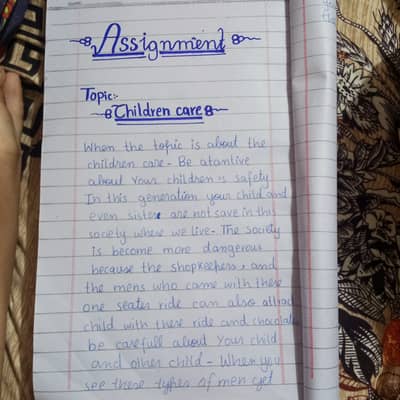 Assignment
Topic:-
Children care
When the topic is about the
children care - Be atantive
about your children's safety
In this generation your child and
even sister are not save in this
society where we live - The society
is become more dangerous
because the shopkeepers, and
the mens who came with these
one seater ride can also attrac
child with these ride and chocolate
be carefull about your child
and other child - When you
see these types of men get